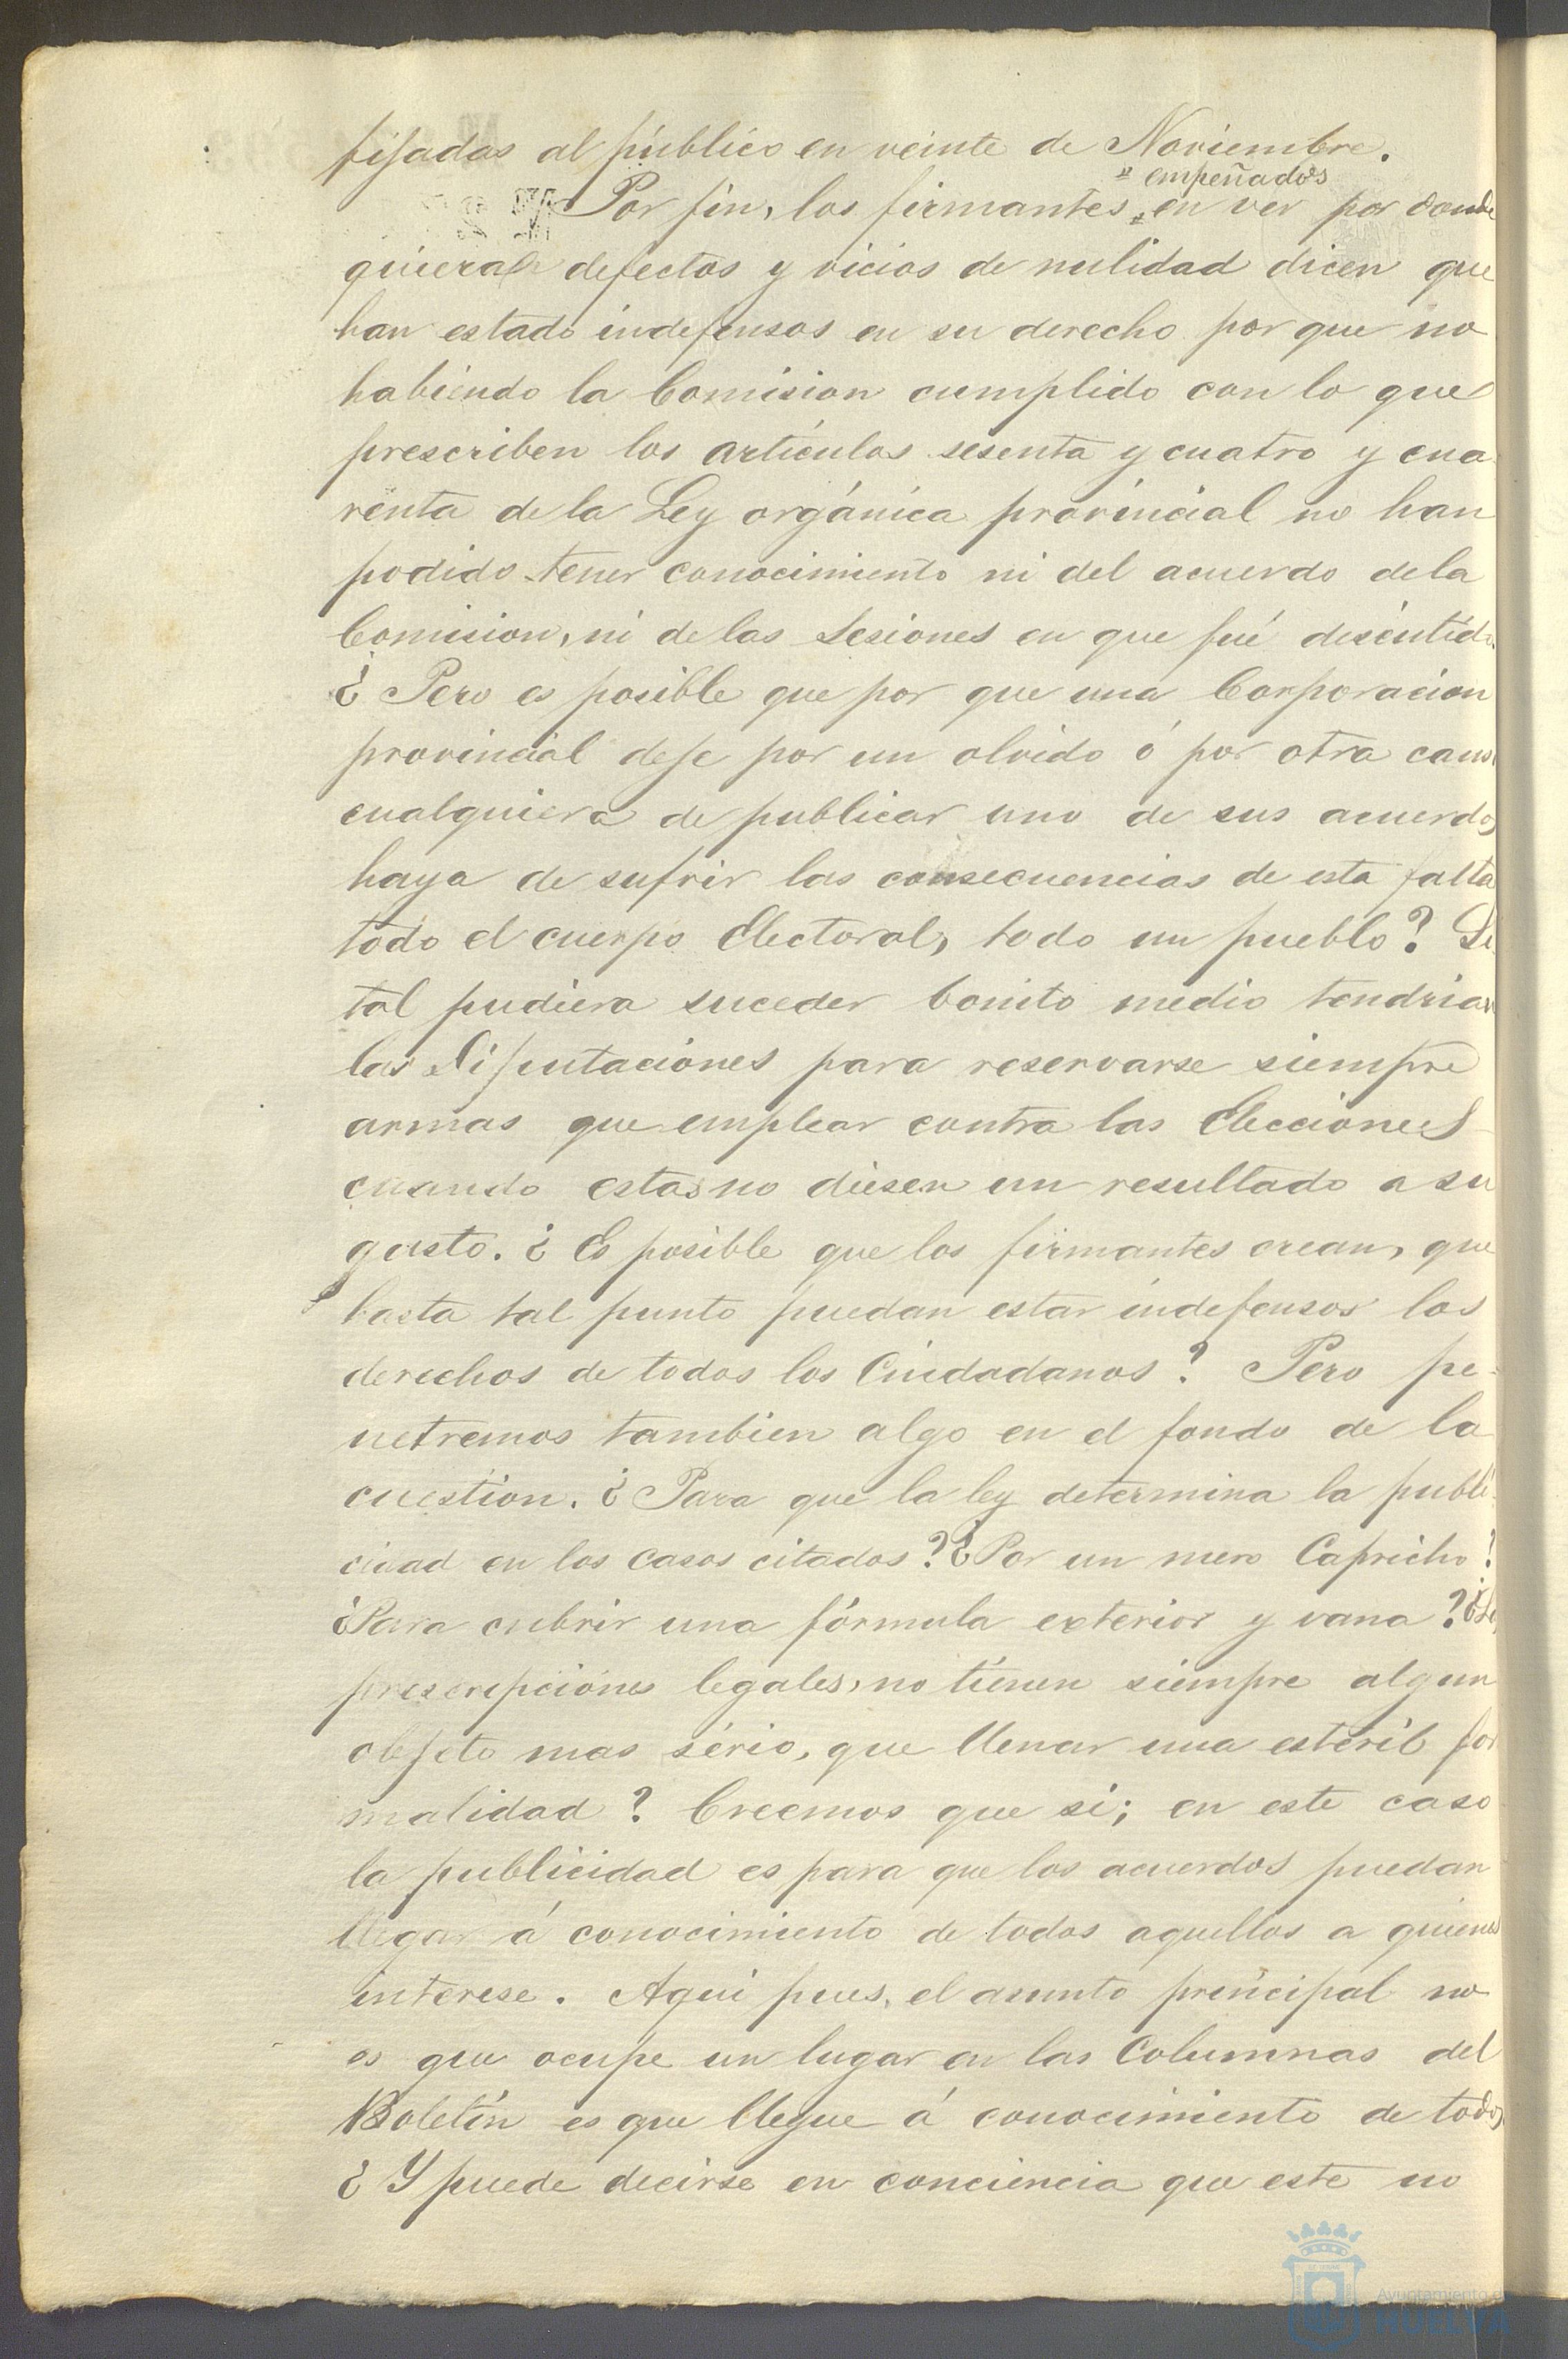 fijadas al público en veinte de Noviembre.
" empeñados
Por fin, los firmantes " en ver por donde
quieran defectos y vicios de nulidad dicen que
han estado indefensos en su derecho por que no
habiendo la Comision cumplido con lo que
prescriben los artículos sesenta y cuatro y cua
renta de la Ley orgánica provincial no han
podido tener conocimiento ni del acuerdo dela
Comision, ni de las Sesiones en que fué discutido.
¿ Pero es posible que por que una Corporacion
provincial deje por un olvido ó por otra causa
cualquiera de publicar uno de sus acuerdos
haya de sufrir las consecuencias de esta falta
todo el cuerpo Electoral, todo un pueblo? Si
tal pudiera suceder bonito medio tendrian
las Diputaciones para reservarse siempre
armas que emplear contra las Elecciones
cuando estas no diesen un resultado a su
gusto. ¿ Es posible que los firmantes crean, que
hasta tal punto puedan estar indefensos los
derechos de todos los Ciudadanos? Pero pe-
netremos tambien algo en el fondo de la
cuestion. ¿ Para que la ley determina la publi
cidad en los casos citados? ¿Por un mero Capricho?
¿Para cubrir una fórmula exterior y vana? ¿Las
prescripciones legales, no tienen siempre algun
objeto mas sério, que llenar una esteril for
malidad? Creemos que si; en este caso
la publicidad es para que los acuerdos puedan
llegar á conocimiento de todos aquellos a quienes
interese. Aqui pues, el asunto principal no
es que ocupe un lugar en las Columnas del
Boletín es que llegue á conocimiento de todos
¿ Y puede decirse en conciencia que este no
Ayuntamiento de
HUELVA